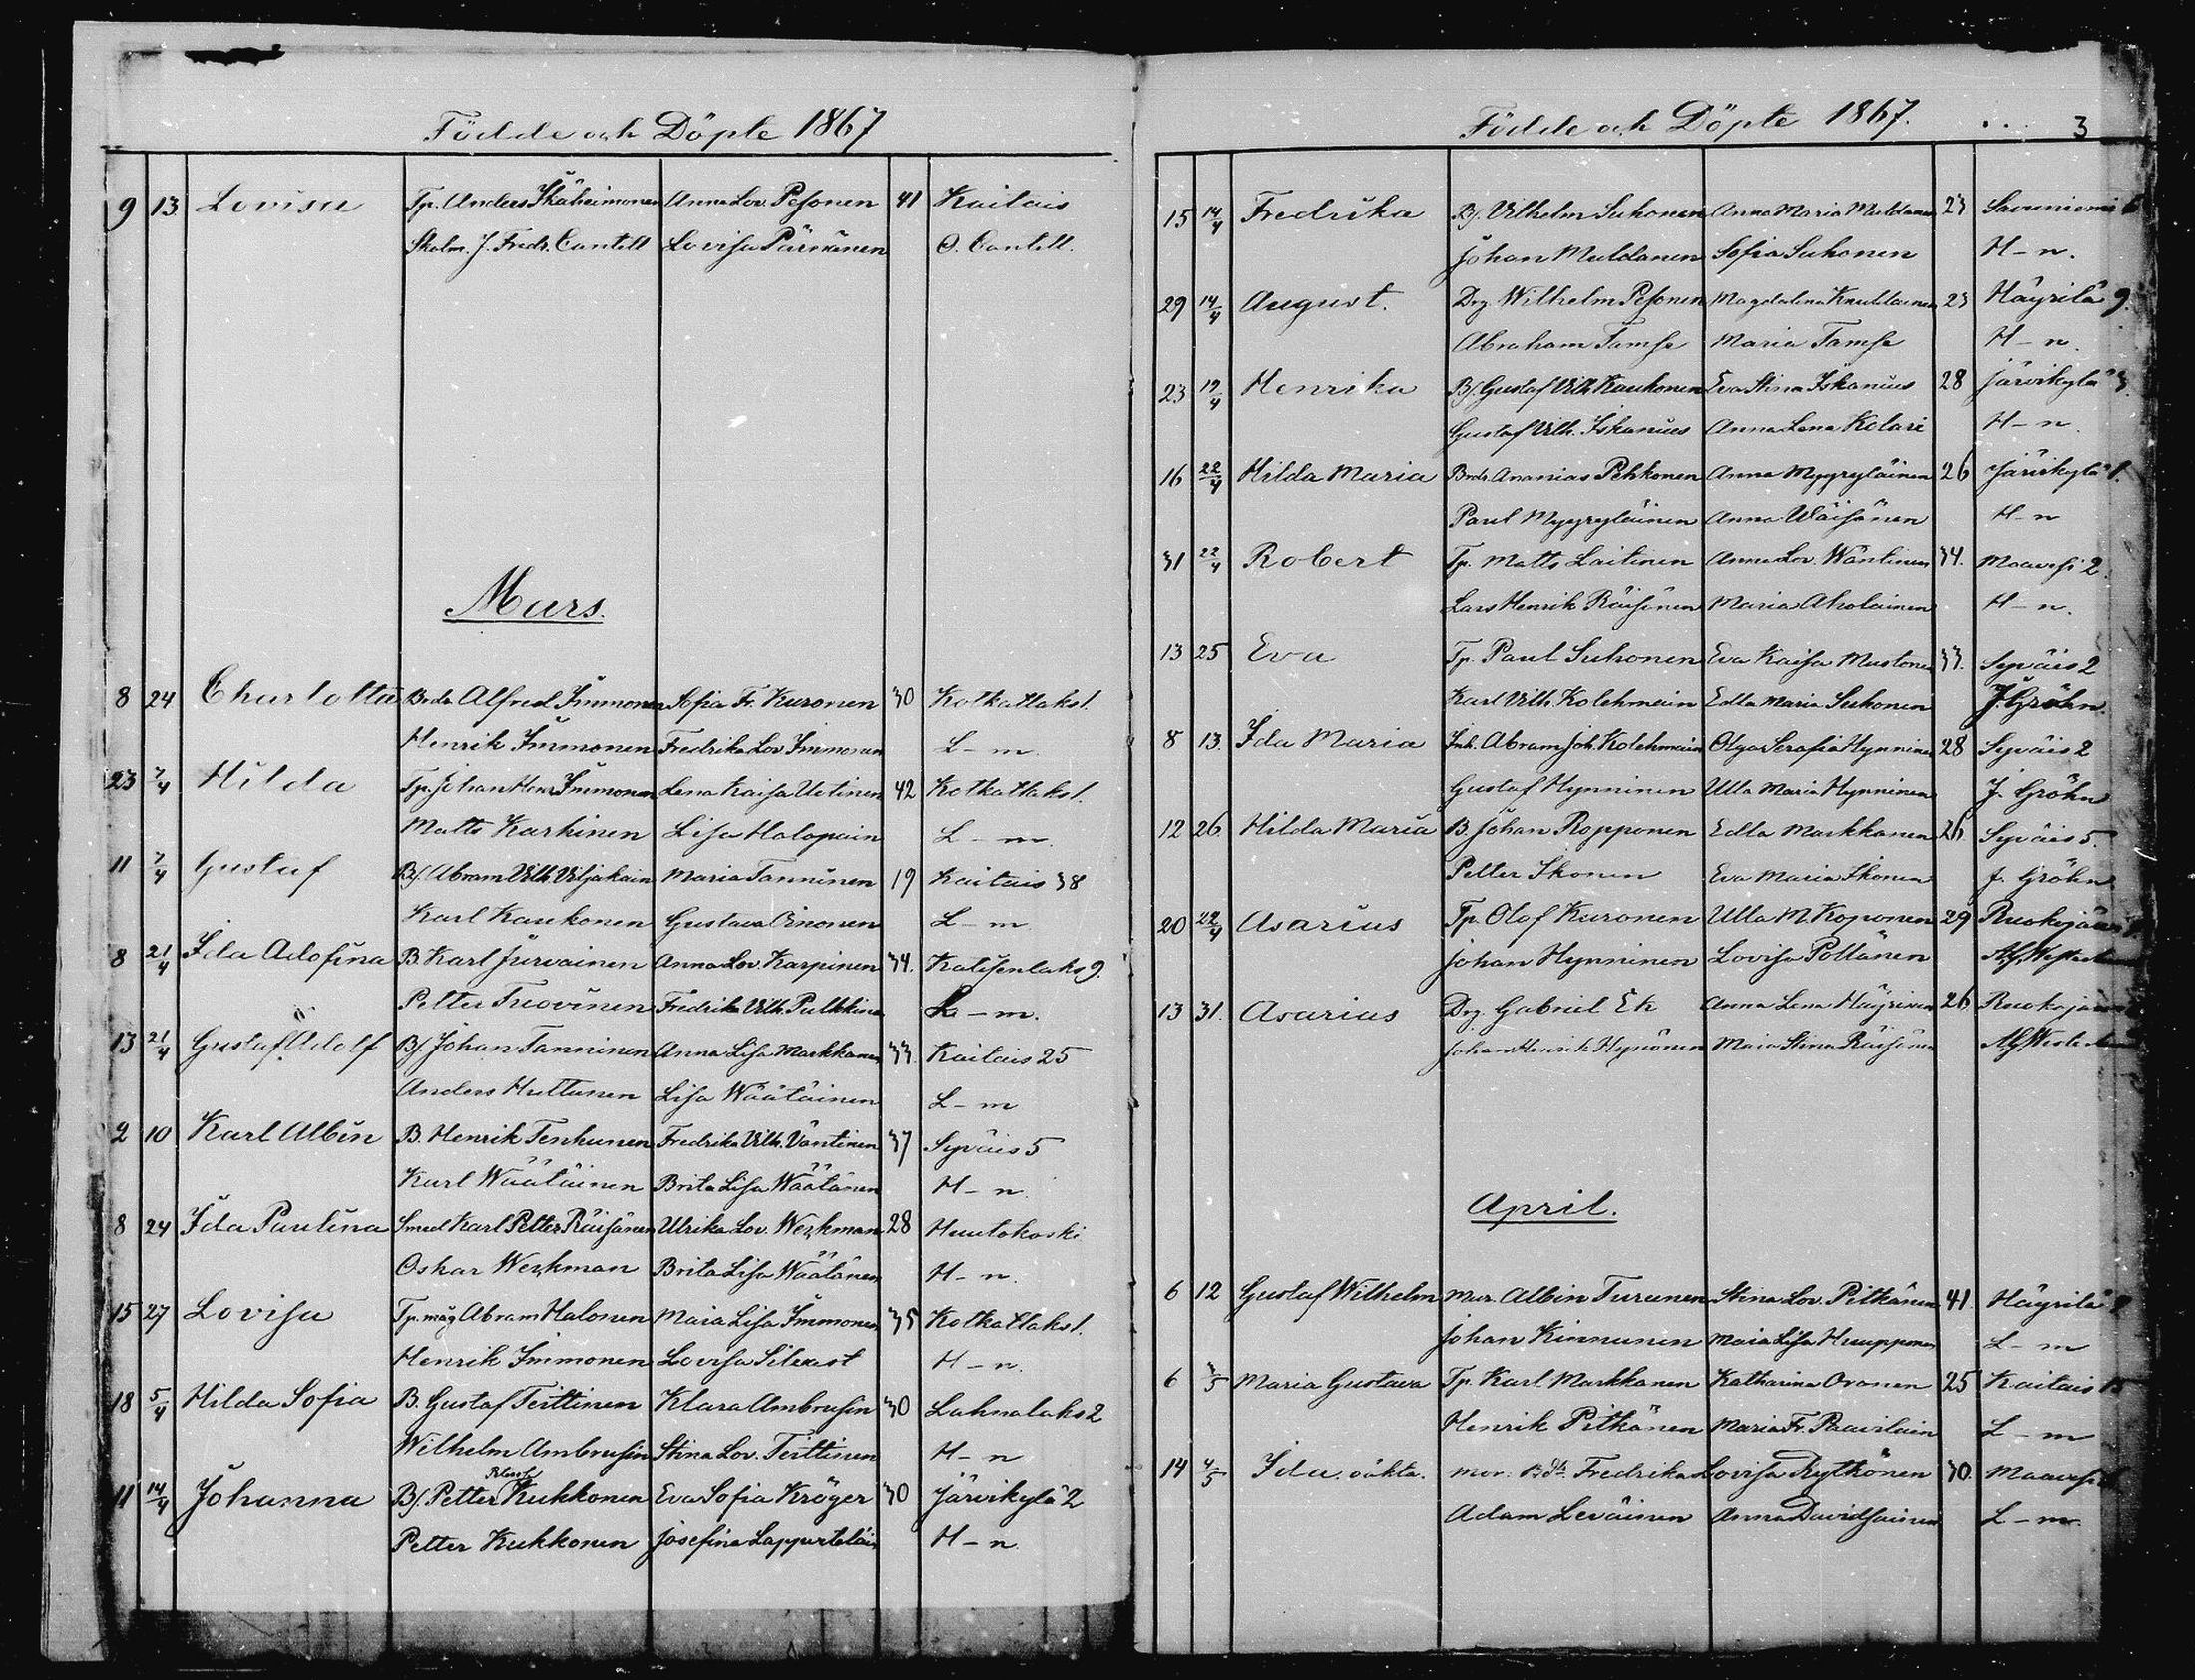 Födde och Döpte 1867
9 13 Lovisa Tp. Anders Ikäheimonen Anna Lov. Pesonen 41 Kaitais
Skolm. J. Fredr. Cantell Lovisa Pärnänen O. Cantell.
Mars.
8 24 Charlotta Bndr Alfred Immonen Sofia Fr. Kuronen 30 Kotkatlaks 1.
Henrik Immonen Fredrika Lov Immonen L-m.
23 7/4 Hilda Tp. Johan Henr Immonen Lena Kaisa Uotinen 42 Kotkatlaks 1.
Matts Karhinen Lisa Halopain L-m.
11 7/4 Gustaf Bf. Abram Vilh Viljakain Maria Tanninen 19 Kaitais 38
Karl Kaukonen Gustava Oinonen L-m
8 21/4 Ida Adofina B. Karl Järvainen Anna Lov. Karpinen 34. Katisenlaks 9.
Petter Tuovinen Fredrika Vilh. Pulkkine L-m.
13 21/4 Gustaf Adolf Bf. Johan Tanninen Anna Lisa Markkanen 33. Kaitais 25
Anders Huttunen Lisa Wäätäinen L-m
2 10 Karl Albin B. Henrik Tenhunen Fredrika Vilh. Väntinen 37 Syväis 5
Karl Wäätäinen Brita Lisa Wäätänen H-n.
8 24 Ida Paulina Smed Karl Petter Räisänen Ulrika Lov. Werkman 28 Huutokoski
Oskar Werkman Brita Lisa Wäätänen H-n.
15 27 Lovisa Tp. måg Abram Halonen Maia Lisa Immonen 35 Kotkatlaks 1.
Henrik Immonen Lovisa Silvast H-n.
18 5/4 Hilda Sofia B. Gustaf Teittinen Klara Ambrusin 30 Lahnalaks 2
Wilhelm Ambrusin Stina Lov. Teittinen H-n
11 14/4 Johanna Bf. Petter Kukkonen Eva Sofia Kröger 30 Järvikylä 2
Petter Kukkonen Josefina Lappveteläin H-n.
Födde och Döpte 1867. 3
15 14/4 Fredrika Bf. Vilhelm Suhonen Anna Maria Muldanen 23 Savuniemi 6
Johan Muldanen Sofia Suhonen H-n.
29 14/4 August. Drg Wilhelm Pesonen Magdalena Knuutlainen 23 Häyrilä 9.
Abraham Tamse Maria Tamse H-n.
23 19/4 Henrika Bf. Gustaf Vilh Kaukonen Eva Stina Iskanius 28 Järvikylä 3.
Gustaf Vilh. Iskanius Anna Lena Kolari H-n.
16 22/4 Hilda Maria Bndr. Ananias Pehkonen Anna Myyryläinen 26 Järvikylä 1.
Paul Myyryläinen Anna Wäisänen H-n
31 22/4 Robert Tp. Matts Laitinen Anna Lov. Wäntinen 34. Maavesi 2.
Lars Henrik Räisänen Maria Aholainen H-n.
13 25 Eva Tp. Paul Suhonen Eva Kaisa Mustonen 33. Syväis 2
Karl Vilh. Kolehmain Edla Maria Suhonen J. Gröhn.
8 13. Ida Maria Inh. Abram Joh. Kolehmain Olga Serafia Hynninen 28 Syväis 2
Gustaf Hynninen Ulla Maria Hynninen J. Gröhn
12 26 Hilda Maria B. Johan Ropponen Edla Markkanen 26. Syväis 5.
Petter Ikonen Eva Maria Ikonen J. Gröhn
20 22/4 Asarius Tp. Olof Kuronen Ulla M. Koponen 29 Ruokojärvi
Johan Hynninen Lovisa Pöllänen
13 31. Asarius Drg. Gabriel Ek Anna Lena Häyrinen 26
Johan Henrik Hynönen Maia Stina Räisänen
April.
6 12 Gustaf Wilhelm Mur. Albin Turunen Stina Lov. Pitkänen 41 Häyrilä
Johan Kinnunen Maia Lisa Huupponen L-m
6 3/5 Maria Gustava Tp. Karl Markkanen Katharina Oronen 25 Kaitais 15
Henrik Pitkänen Maria Fr. Paavilain L-m
14 4/5 Ida oäkta. Mor: Bdtr. Fredrika Lovisa Rytkönen 30. Maavesi
Adam Leväinen Anna Davidsainen L-m.